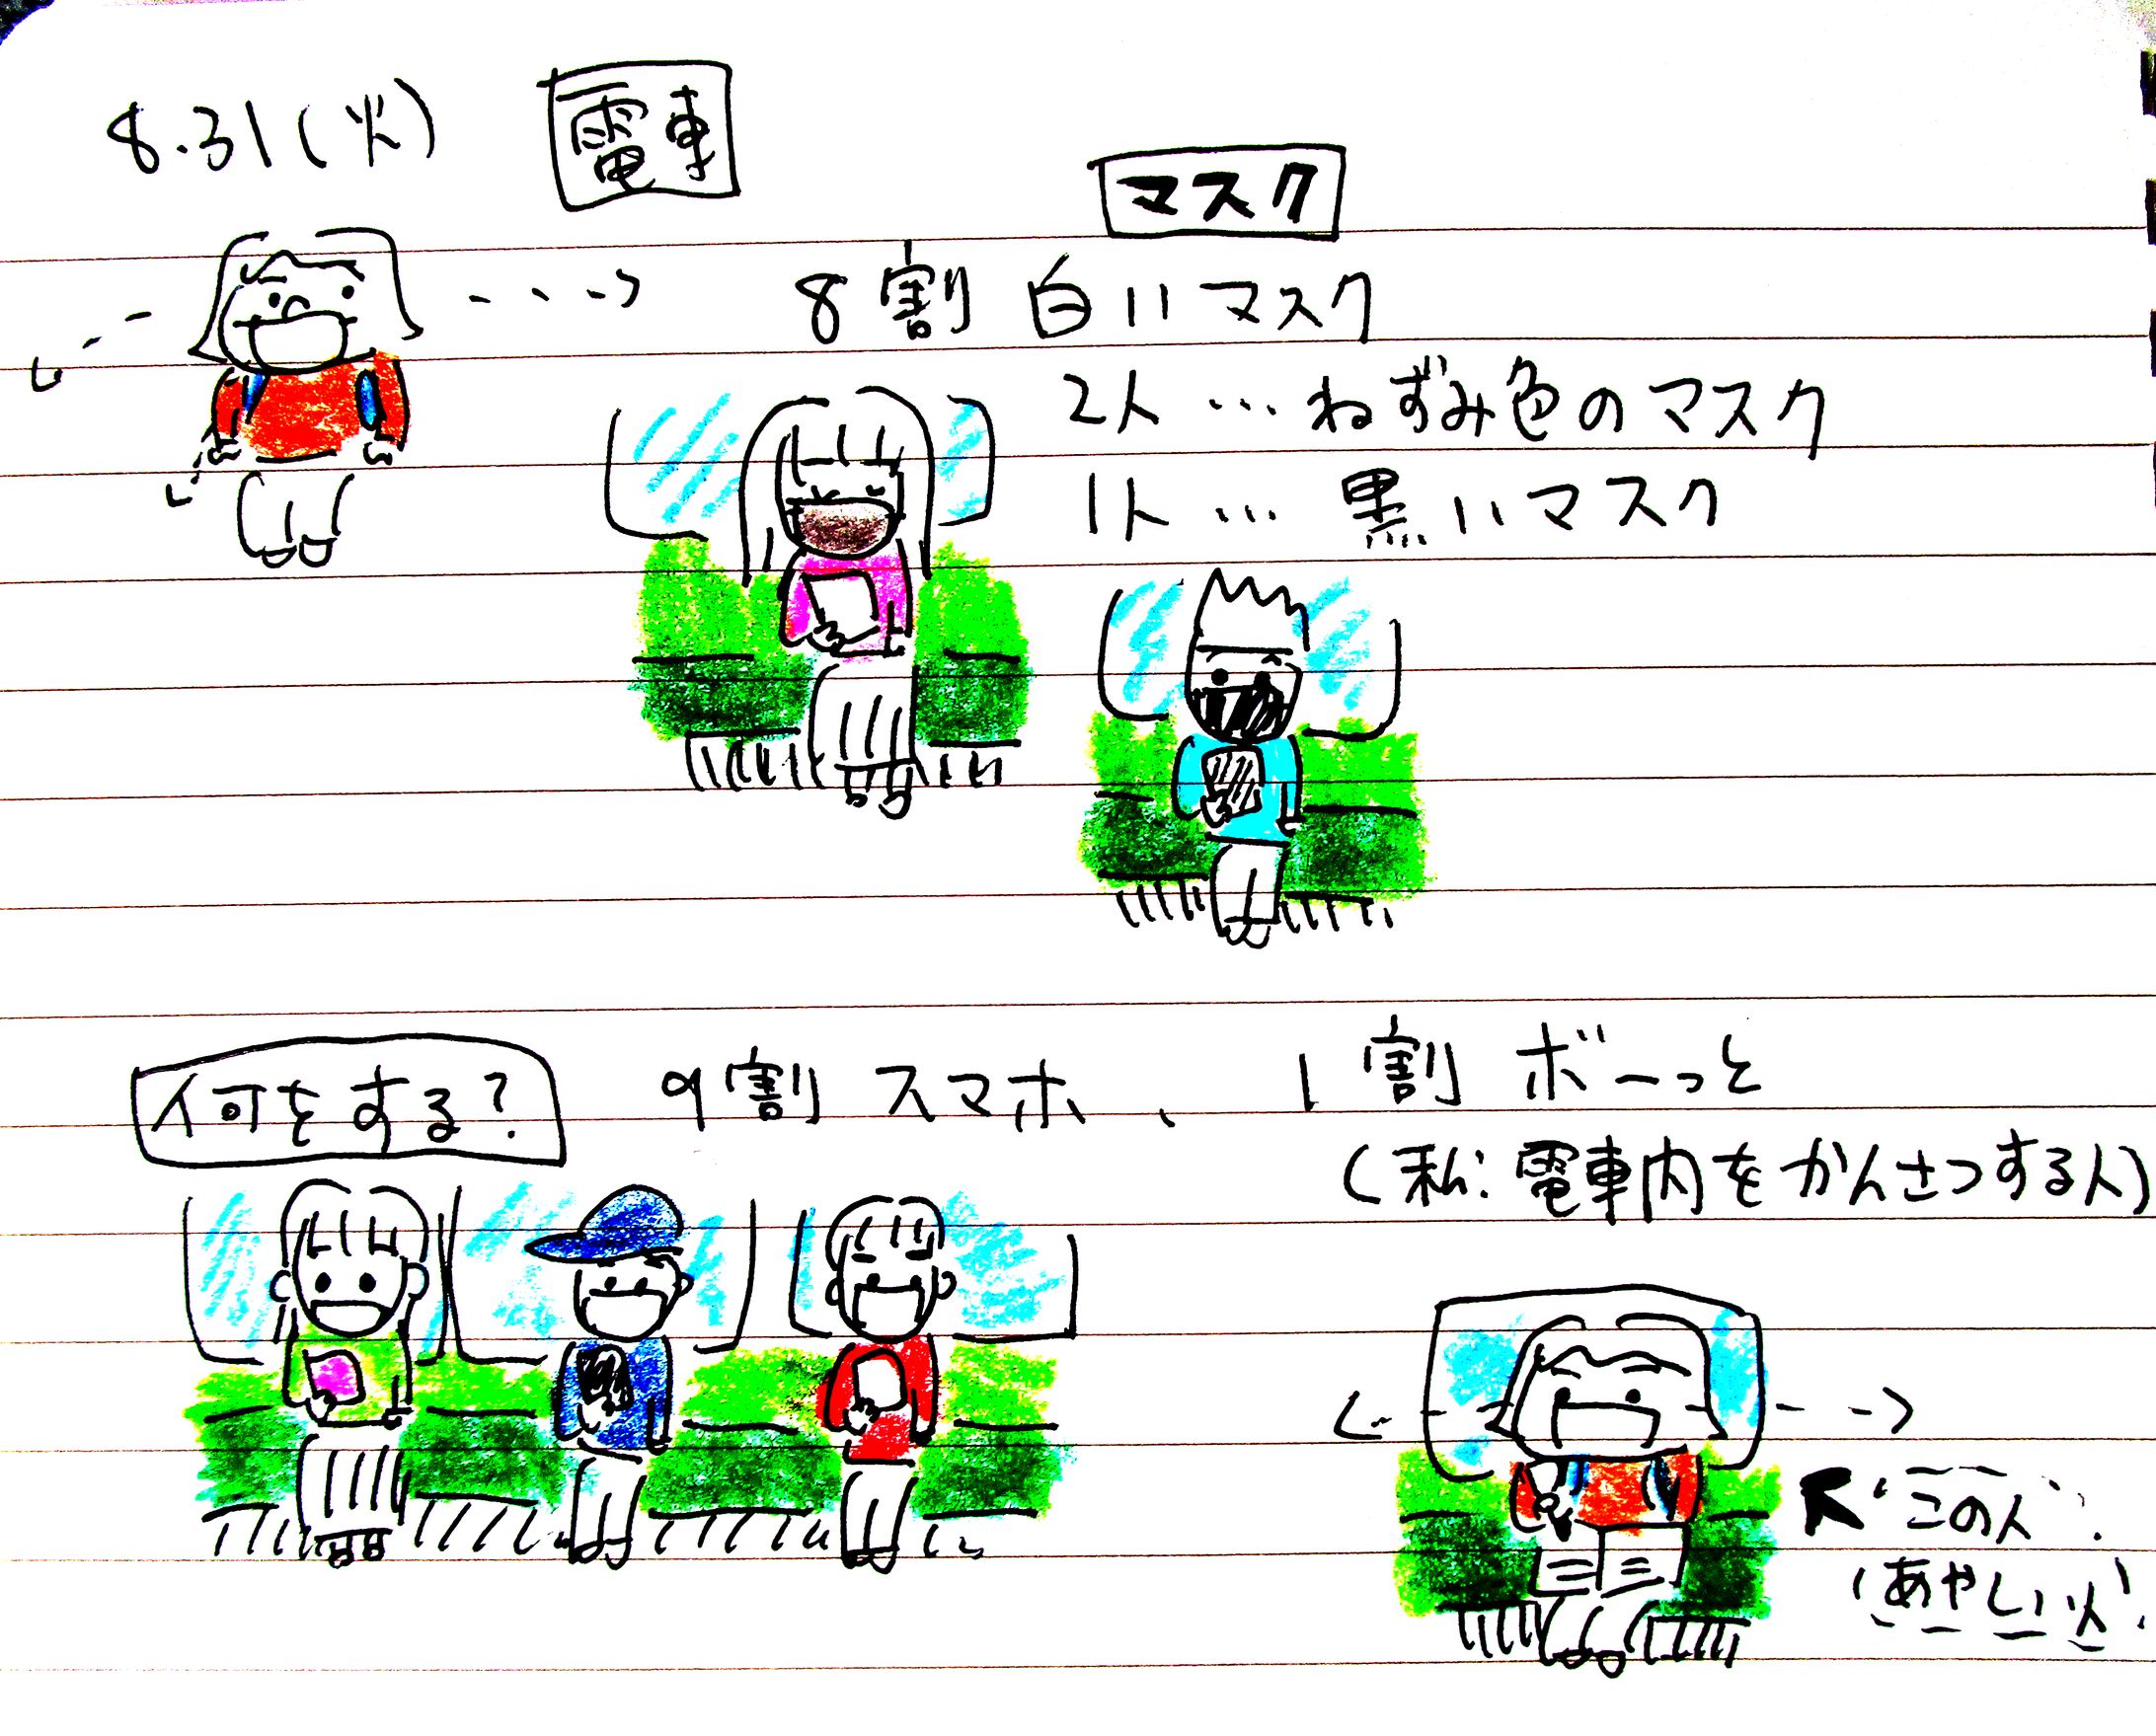 8.31(火) 電車
マスク
8割 白いマスク
2人…ねずみ色のマスク
1人… 黒いマスク
何をする? 9割 スマホ、 1割 ボーっと
(私:電車内をかんさつする人)
この人
あやしい人